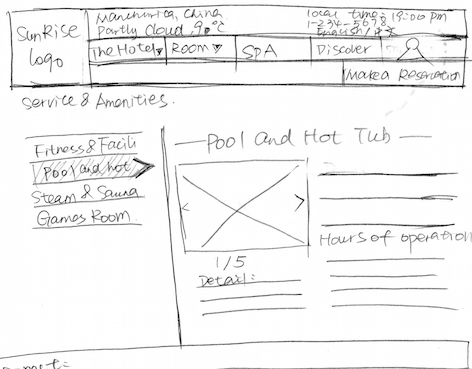 SunRise
Logo
Partly Cloud, 90°C
local time: 19:00 pm
1-234-5678
English/中文
The Hotel▼
Room▼
SPA
Discover
Make a Reservation
Service & Amenities.
Fitness & Facili
Pool and hot
Steam & Sauna
Games Room.
Pool and Hot Tub
< >
1/5
Detail:
Hours of operation